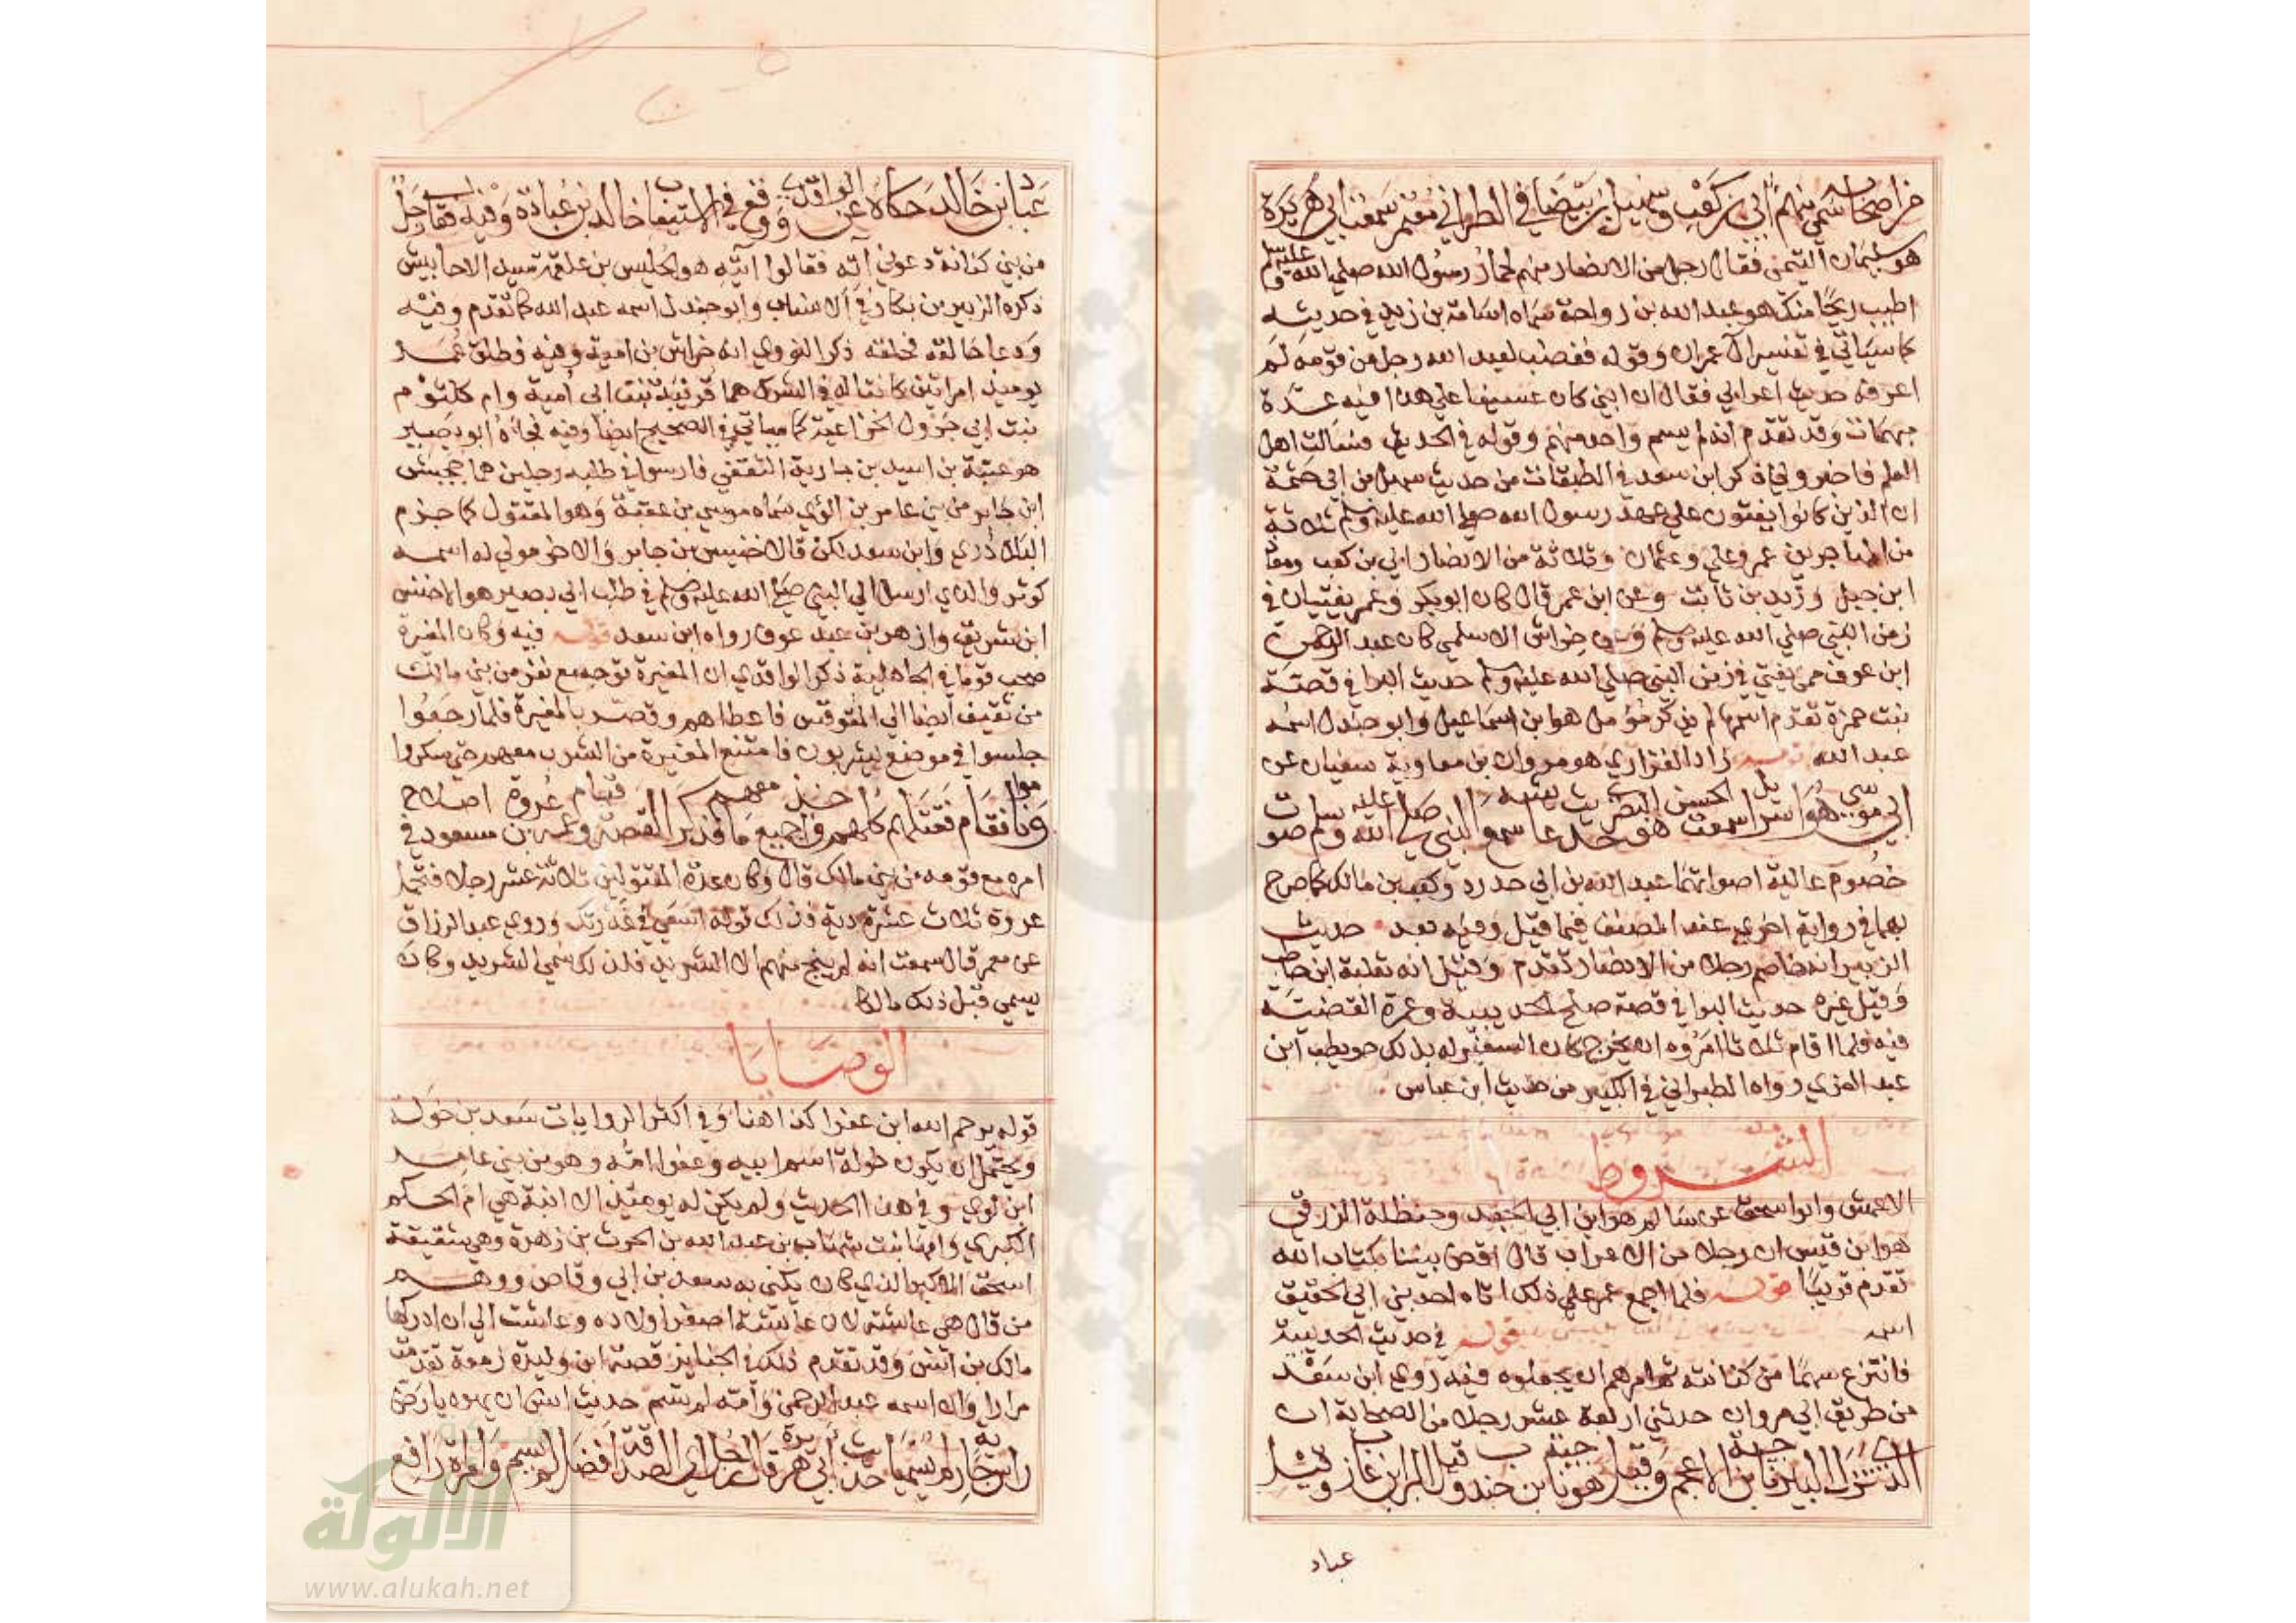 خر اصحابه سمي منهم ابي بن كعب وسهيل بن بيضا في الطبراني معتمر سمعت ابي هريرة
هو سليمان التيمي فقال رجل من الانصار منهم لحمار رسول الله صلى الله عليه وسلم
اطيب ريحا منك هو عبد الله بن رواحة سماه اسامة بن زيد في حديثه
كما سياتي في تفسير ال عمران وقوله فغضب لعبد الله رجل من قومه لم
اعرفه حديث اعرابي فقال ان ابني كان عسيفا على هذا فيه عدة
مبهمات وقد تقدم انه لم يسم واحد منهم وقوله في الحديث فسالت اهل
العلم فاخبروني ذكر ابن سعد في الطبقات من حديث سهل بن ابي حثمة
ان الذين كانوا يفتون على عهد رسول الله صلى الله عليه وسلم ثلاثة
من المهاجرين عمر وعلي وعثمان وثلاثة من الانصار ابي بن كعب ومعاذ
ابن جبل وزيد بن ثابت وعن ابن عمر قال كان ابو بكر وعمر يفتيان في
زمن النبي صلى الله عليه وسلم وعن خراش الاسلمي كان عبد الرحمن
ابن عوف ممن يفتي في زمن النبي صلى الله عليه وسلم حديث البرا في قصة
بنت حمزة تقدم اسمها لم يذكر مؤمل هو ابن اسماعيل وابو جندل اسمه
عبد الله زاد الفزاري هو مروان بن معاوية سفيان عن
ابي موسى هو اسرائيل الحسن البصري سمعت هو حديث عائشة سمع النبي صلى الله عليه وسلم صوت
خصوم عالية اصواتهما عبد الله بن ابي حدرد وكعب بن مالك كما صرح
بهما في رواية اخرى عند المصنف فيما قيل وفيه بعد حديث
الزبير انه خاصم رجلا من الانصار تقدم وقيل انه ثعلبة ابن حاطب
وقيل غيره حديث البرا في قصة صلح الحديبية وعمرة القضية
فيه فلما اقام ثلاثا امروه ان يخرج كان السفير له بذلك حويطب ابن
عبد العزي رواه الطبراني في الكبير من حديث ابن عباس
الشروط
الاعمش وابو اسحق عن سالم هو ابن ابي الجعد وحنظلة الزرقي
هو ابن قيس ان رجلا من الاعراب قال اقض بيننا بكتاب الله
تقدم قريبا قوله فلما اجمع عمر على ذلك اتاه احد بني ابي الحقيق
قوله في حديث الحديبية
فانتزع سهما من كنانته ثم امرهم ان يجعلوه فيه روى ابن سعد
من طريق ابي مروان حدثني اربعة عشر رجلا من الصحابة ان
الذي نزل البير ناجية بن الاعجم وقيل هو ناجية بن جندب وقيل البرا بن عازب وقيل
عباد
عباد بن خالد حكاه عن الواقدي ووقع في الاستيعاب خالد بن عبادة وفيه فقال رجل
من بني كنانة دعوني اته فقالوا ايته هو الحليس بن علقمة سيد الاحابيش
ذكره الزبير بن بكار في الانساب وابو جندل اسمه عبد الله كما تقدم وفيه
ودعا حالقه فحلقه ذكر النووي انه خراش بن امية وفيه فطلق عمر
يومئذ امراتين كانتا له في الشرك هما قريبة بنت ابي امية وام كلثوم
بنت ابي جرول الخزاعية كما سياتي في الصحيح ايضا وفيه فجاه ابو بصير
هو عتبة بن اسيد بن جارية الثقفي فارسلوا في طلبه رجلين هما جحيش
ابن جابر من بني عامر بن لؤي سماه موسى بن عقبة وهو المقتول كما جزم
البلاذري وابن سعد لكن قالا خنيس بن جابر والاخر مولى له اسمه
كوثر والذي ارسل الى النبي صلى الله عليه وسلم في طلب ابي بصير هو الاخنس
ابن شريق وازهر بن عبد عوف رواه ابن سعد قوله فيه وكان المغيرة
صحب قوما في الجاهلية ذكر الواقدي ان المغيرة توجه مع نفر من بني مالك
من ثقيف ايضا الى المقوقس فاعطاهم وقصر بالمغيرة فلما رجعوا
جلسوا في موضع يشربون فامتنع المغيرة من الشرب معهم حتى سكروا
وناموا فقام فقتلهم كلهم واخذ جميع ما معهم فذكر القصة وقيام عروة بن مسعود في اصلاح
امره مع قومه من بني مالك قال وكان عدة المقتولين ثلاثة عشر رجلا فتحمل
عروة ثلاث عشرة دية فذلك قوله اسعى في غدرتك وروى عبد الرزاق
عن معمر قال سمعت انه لم ينج منهم الا الشريد فلذلك سمي الشريد وكان
يسمي قبل ذلك مالكا
الوصايا
قوله يرحم الله ابن عفرا كذا هنا وفي اكثر الروايات سعد بن خولة
ويحتمل ان يكون خولة اسم ابيه وعفرا امه وهو من بني عامر
ابن لوي وفي هذا الحديث ولم يكن له يومئذ الا ابنة هي ام الحكم
الكبرى وامها بنت شهاب بن عبد الله بن الحرث بن زهرة وهي شقيقة
اسحق الاكبر الذي كان يكنى به سعد بن ابي وقاص ووهم
من قال هي عايشة لان عايشة اصغر اولاده وعاشت الى ان ادركها
مالك بن انس وقد تقدم ذلك في الجنايز قصة ابن وليدة زمعة تقدمت
مرارا وان اسمه عبد الرحمن وامه لم تسم حديث انس ان يهوديا رض
راس جارية لم يسميا حديث ابي هريرة قال رجل اي الصدقة افضل لم يسم وامراة رافع
الالوكة
www.alukah.net